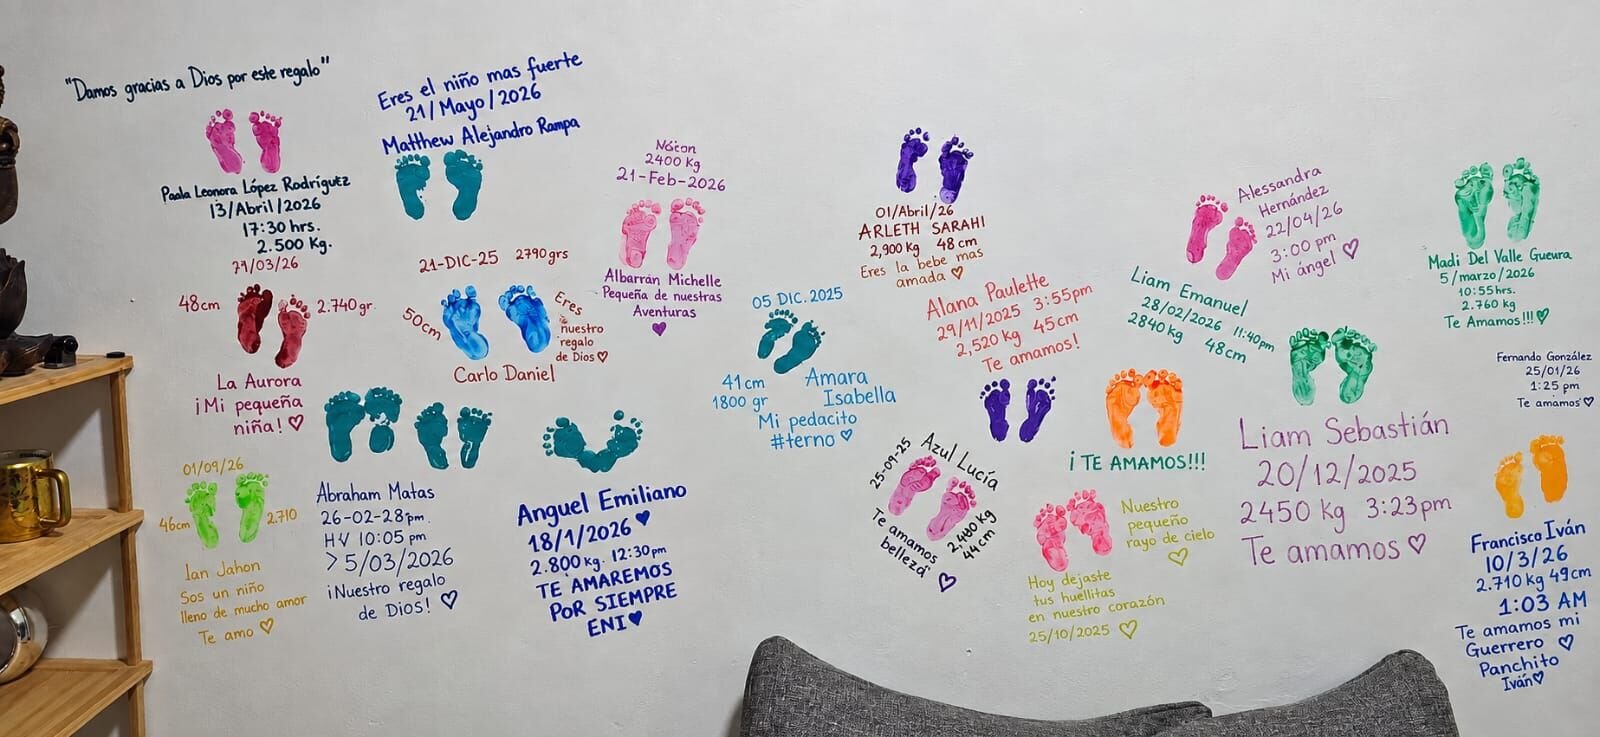 "Damos gracias a Dios por este regalo"
Paala Leonora López Rodríguez
13/Abril/2026
17:30 hrs.
2.500 Kg.
Eres el niño mas fuerte
21/Mayo/2026
Matthew Alejandro Rampa
2400 Kg
21-Feb-2026
Albarrán Michelle
Pequeña de nuestras
Aventuras
01/Abril/26
ARLETH SARAHI
2,900kg 48 cm
Eres la bebe mas
amada
Alessandra
Hernández
22/04/26
3:00 pm
Mi ángel
Madi Del Valle Gueura
5/marzo/2026
10:55hrs.
2.760 kg
Te Amamos!!!
/03/26
48cm
2.740 gr.
La Aurora
¡Mi pequeña
niña!
21-DIC-25 2790grs
50cm
Eres
nuestro
regalo
de Dios
Carlo Daniel
05 DIC. 2025
41cm
1800 gr
Amara
Isabella
Mi pedacito
#terno
Alana Paulette
29/11/2025 3:55pm
2,520 kg 45cm
Te amamos!
Liam Emanuel
28/02/2026 11:40pm
2840kg 48cm
Fernando González
25/01/26
1:25 pm
Te amamos
01/09/26
46cm
2.710
Ian Jahon
Sos un niño
lleno de mucho amor
Te amo
Abraham Matas
26-02-28pm.
HV 10:05 pm
> 5/03/2026
¡Nuestro regalo
de Dios!
Anguel Emiliano
18/1/2026
2.800kg. 12:30pm
TE AMAREMOS
POR SIEMPRE
ENI
25-09-25
Azul Lucía
2,480 kg
44cm
Te amamos
belleza
¡TE AMAMOS!!!
Nuestro
pequeño
rayo de cielo
Hoy dejaste
tus huellitas
en nuestro corazón
25/10/2025
Liam Sebastián
20/12/2025
2450 kg 3:23pm
Te amamos
Francisco Iván
10/3/26
2.710kg 49cm
1:03 AM
Te amamos mi
Guerrero
Panchito
Iván